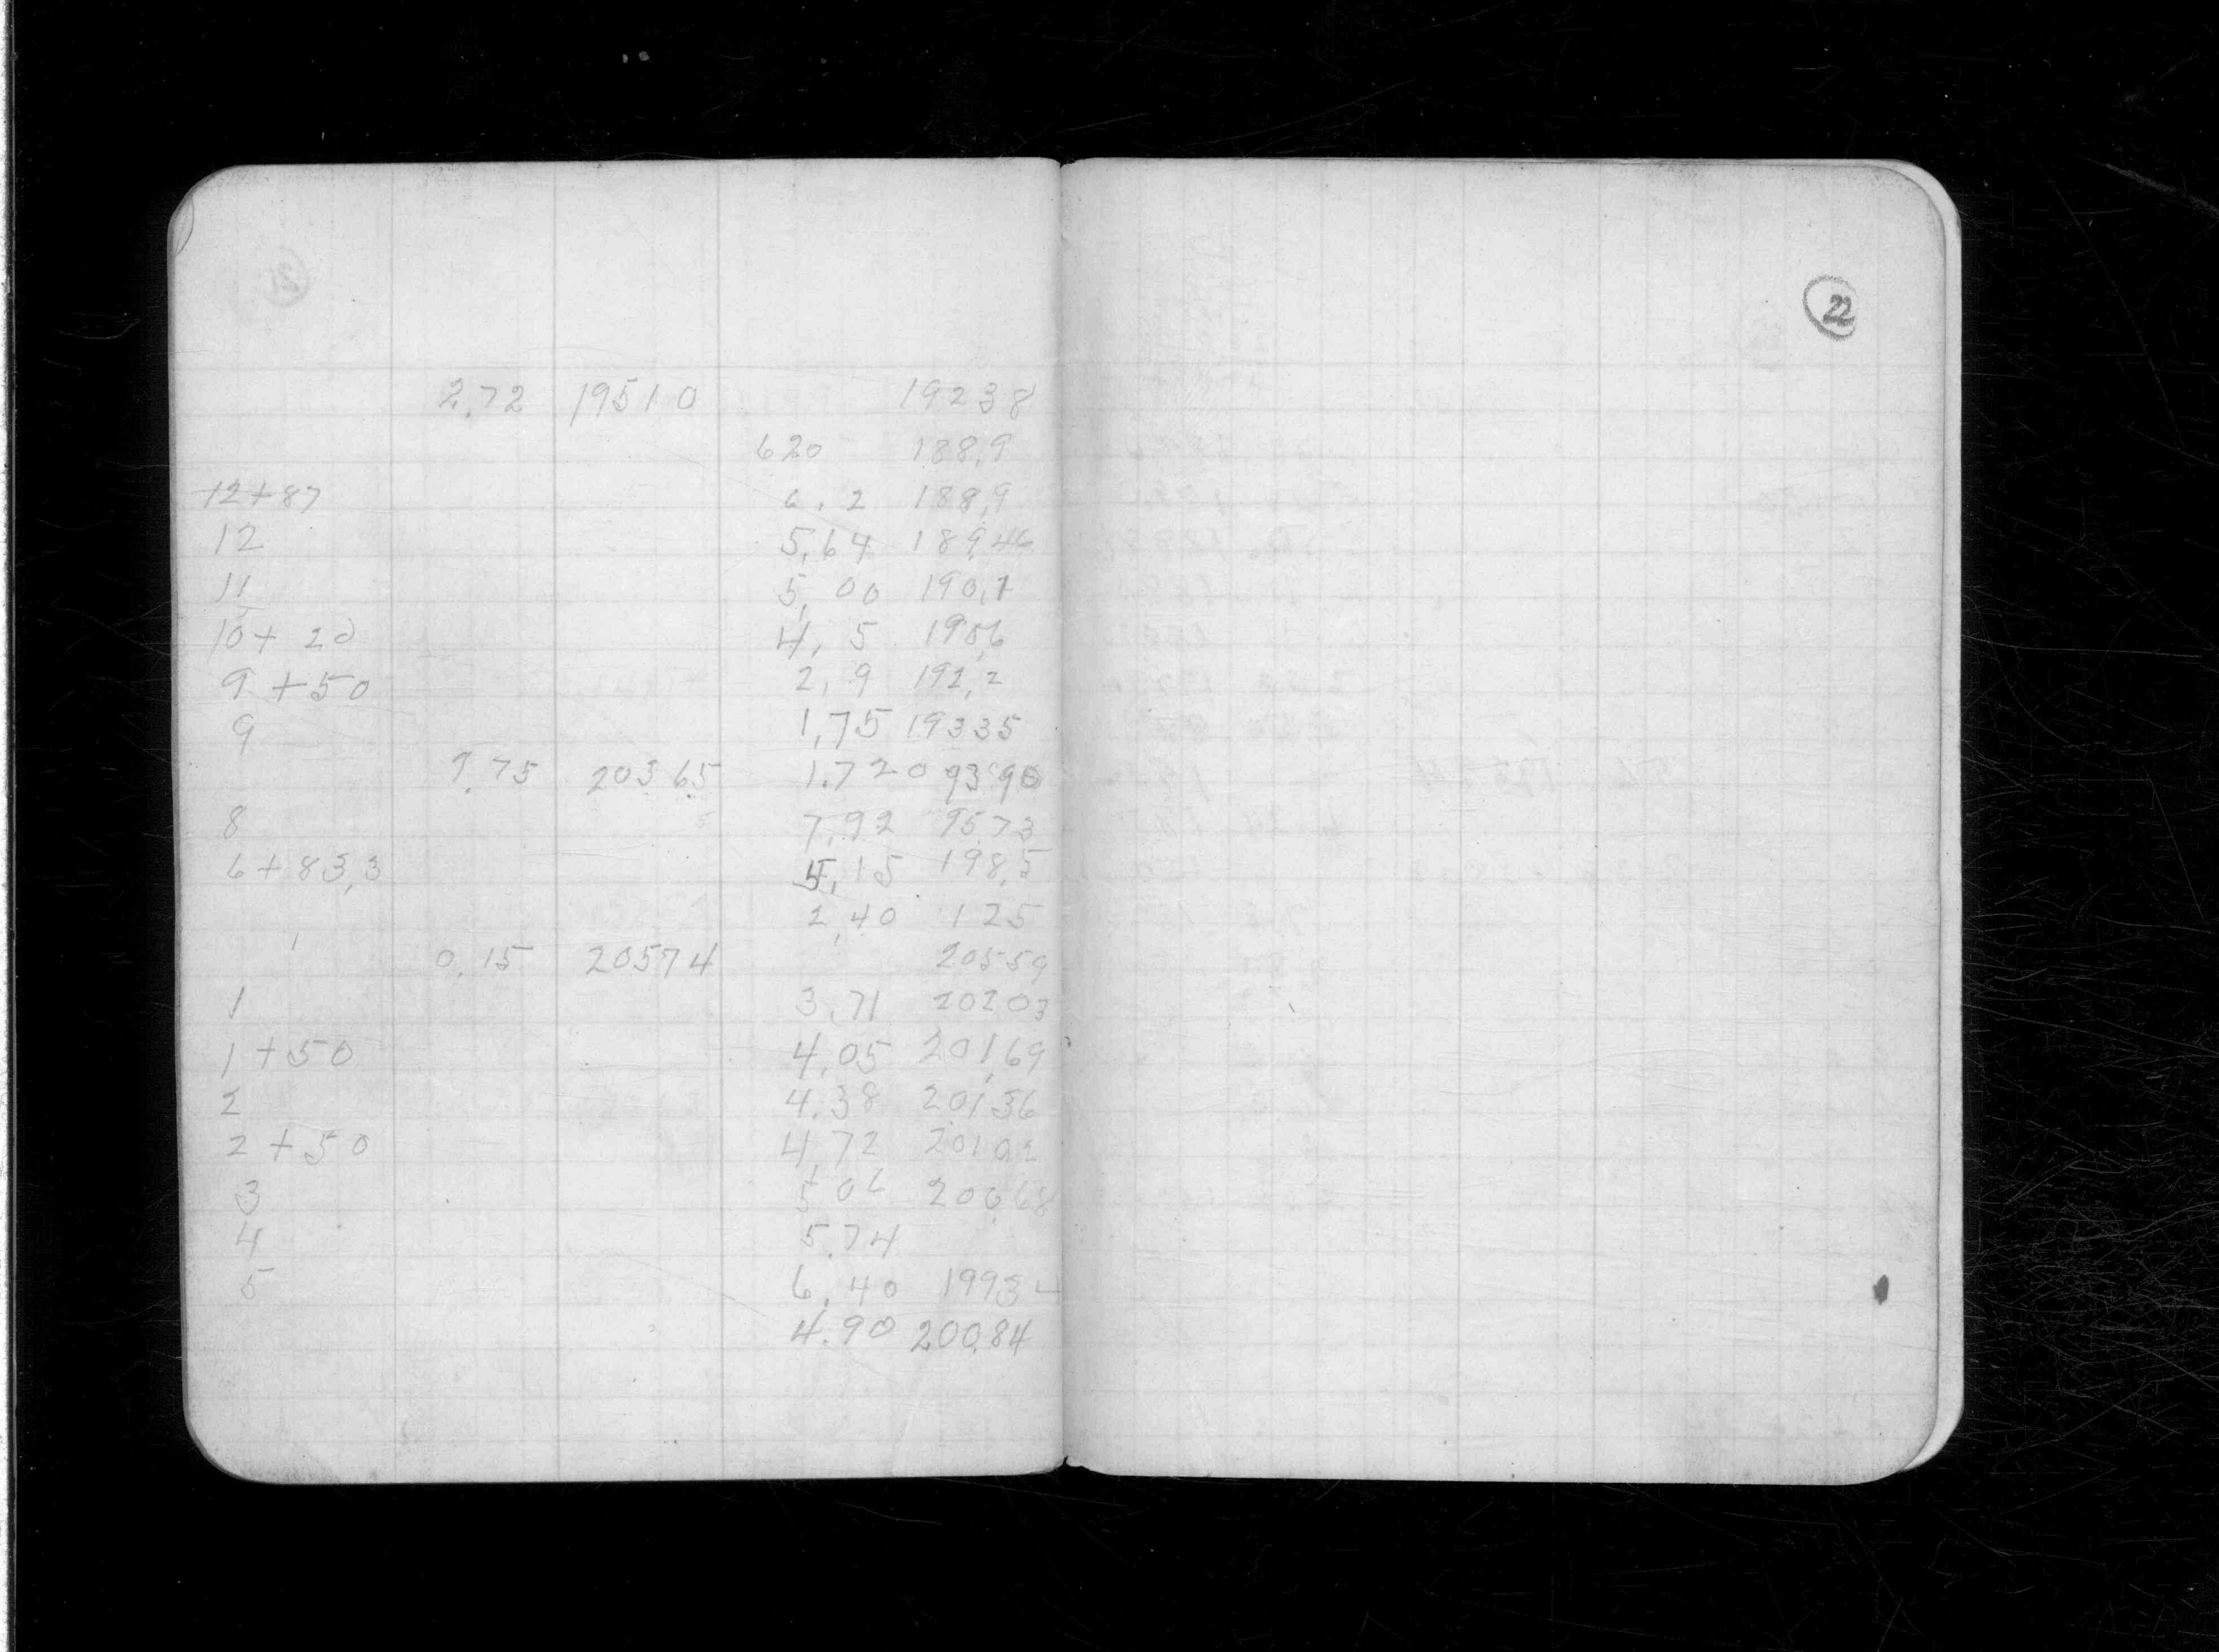 22
2.72 19510 19238
620 188,9
12+87 6.2 188,9
12 5,64 189,46
11 5,00 190,1
10+20 4,5 190,6
9+50 2,9 192,2
9 1,75 19335
9.75 20365 1.720 9390
8 7,92 9573
6+83,3 5,15 198,5
2,40 125
0.15 20574 20559
1 3,71 20203
1+50 4,05 201,69
2 4.38 20136
2+50 4,72 20102
3 5,06 200,68
4 5.74
5 6,40 1993
4.90 200.84